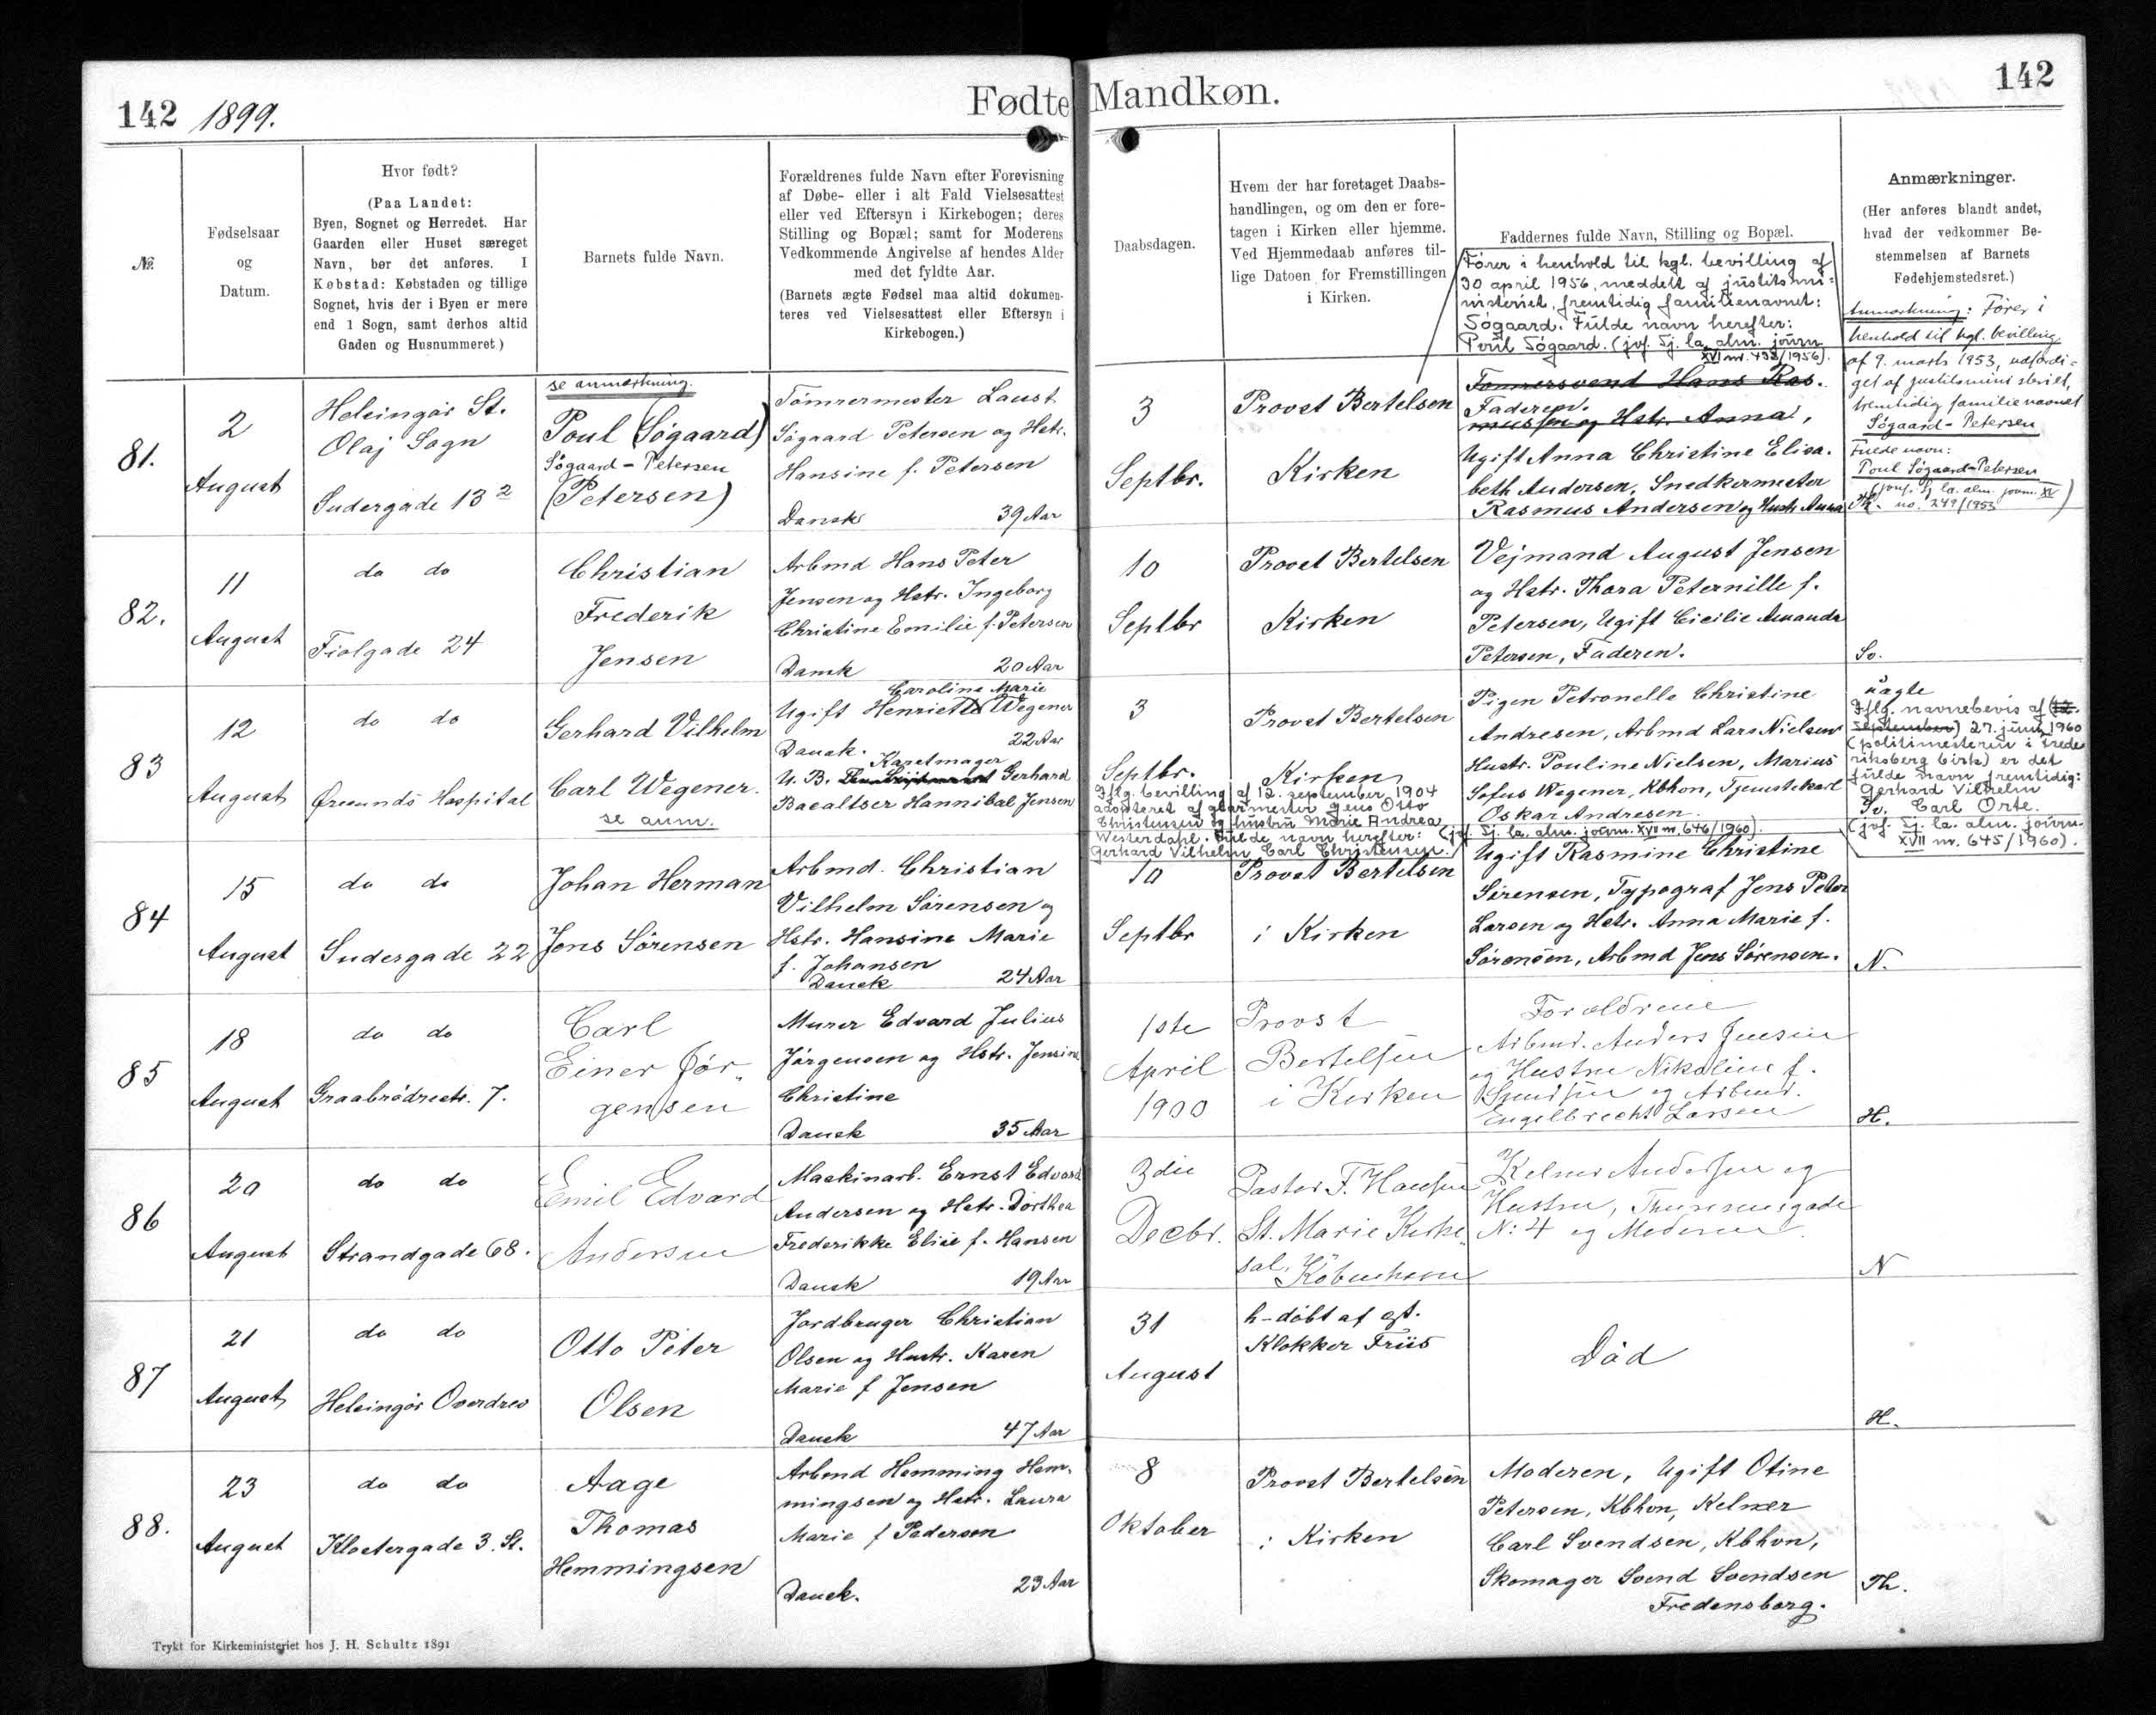 142 1899.
Fødte Mandkøn.
142
№
Fødselsaar
og
Datum.
Hvor født?
(Paa Landet:
Byen, Sognet og Herredet. Har
Gaarden eller Huset særeget
Navn, bør det anføres. I
Købstad: Købstaden og tillige
Sognet, hvis der i Byen er mere
end 1 Sogn, samt derhos altid
Gaden og Husnummeret)
Barnets fulde Navn.
Forældrenes fulde Navn efter Forevisning
af Døbe- eller i alt Fald Vielsesattest
eller ved Eftersyn i Kirkebogen; deres
Stilling og Bopæl; samt for Moderens
Vedkommende Angivelse af hendes Alder
med det fyldte Aar.
(Barnets ægte Fødsel maa altid dokumen-
teres ved Vielsesattest eller Eftersyn i
Kirkebogen.)
Daabsdagen.
Hvem der har foretaget Daabs-
handlingen, og om den er fore-
tagen i Kirken eller hjemme.
Ved Hjemmedaab anføres til-
lige Datoen for Fremstillingen
i Kirken.
Faddernes fulde Navn, Stilling og Bopæl.
Anmærkninger.
(Her anføres blandt andet,
hvad der vedkommer Be-
stemmelsen af Barnets
Fødehjemstedsret.)
81.
2
August
Helsingør St.
Olaj Sogn
Sudergade 13 2
se anmærkning.
Poul (Søgaard)
Søgaard-Petersen
(Petersen)
Tømrermester Laust
Søgaard Petersen og Hstr.
Hansine f. Petersen
Dansk 39 Aar
3
Septbr.
Provst Bertelsen
Kirken
Fører i henhold til kgl. bevilling af
30 april 1956, meddelt af justitsmi-
nisteriet, fremtidig familienavnet:
Søgaard. Fulde navn herefter:
Poul Søgaard. (jvf. Sj. la. alm. journ.
XVI nr. 433/1956).
Tømrersvend Hans Ras-
Faderen.
mussen og Hstr. Anna,
Ugift Anna Christine Elisa-
beth Andersen, Snedkermester
Rasmus Andersen og Hustr Anna
Anmærkning: Fører i
henhold til kgl. bevilling
af 9. marts 1953, udfærdi-
get af justitsministeriet,
fremtidig familienavnet
Søgaard-Petersen
Fulde navn:
Poul Søgaard-Petersen
(jvnf. Sj. la. alm. journ. XV
no. 249/1953)
Th.
82.
11
August
do do
Fiolgade 24
Christian
Frederik
Jensen
Arbmd Hans Peter
Jensen og Hstr. Ingeborg
Christine Emilie f. Petersen
Dansk 20 Aar
10
Septbr
Provst Bertelsen
Kirken
Vejmand August Jensen
og Hstr. Thora Peternille f.
Petersen, Ugift Cicilie Amanda
Petersen, Faderen.
Sv.
83
12
August
do do
Øresunds Hospital
Gerhard Vilhelm
Carl Wegener.
se anm.
Caroline Marie
Ugift Henriette Wegener
22 Aar
Dansk. Karetmager
U. B. Gerhard
Hannibal Jensen
3
Septbr.
Provst Bertelsen
Kirken
Iflg. bevilling af 12. september 1904
adopteret af glarmester Jens Otto
Christensen og hustru Marie Andrea
Westerdahl. Fulde navn herefter: (jvf. Sj. la. alm. journ. XVII nr. 646/1960).
Gerhard Vilhelm Carl Christensen.
Pigen Petronelle Christine
Andresen, Arbmd Lars Nielsen
Hustr. Pouline Nielsen, Marius
Sofus Wegener, Kbhvn, Tjenstekarl
Oskar Andresen.
uægte
Iflg. navnebevis af (12.
september) 27. juni 1960
(politimesteren i Frede-
riksberg birk) er det
fulde navn fremtidig:
Gerhard Vilhelm
Sv. Carl Orte.
(jvf. Sj. la. alm. journ.
XVII nr. 645/1960).
84
15
August
do do
Sudergade 22
Johan Herman
Jens Sørensen
Arbmd. Christian
Vilhelm Sørensen og
Hstr. Hansine Marie
f. Johansen
Dansk 24 Aar
10
Septbr
Provst Bertelsen
i Kirken
Ugift Rasmine Christine
Sørensen, Typograf Jens Peter
Larsen og Hstr. Anna Marie f.
Sørensen, Arbmd Jens Sørensen.
N.
85
18
August
do do
Graabrødrestr. 7.
Carl
Einer Jør-
gensen
Murer Edvard Julius
Jørgensen og Hstr. Jensine
Christine
Dansk 35 Aar
1ste
April
1900
Provst
Bertelsen
i Kirken
Forældrene
Arbmd. Anders Jensen
og Hustru Nikoline f.
og Arbmd.
Engelbrecht Larsen
H.
86
20
August
do do
Strandgade 68.
Emil Edvard
Andersen
Maskinarb. Ernst Edvard
Andersen og Hstr. Dorthea
Frederikke Elise f. Hansen
Dansk 19 Aar
3die
Decbr.
Pastor F. Hansen
St. Marie Kirke-
sal, København
Kelner Andersen og
Hustru,
N: 4 og Moderen.
N
87
21
August
do do
Helsingør Overdrev
Otto Peter
Olsen
Jordbruger Christian
Olsen og Hustr. Karen
Marie f Jensen
Dansk 47 Aar
31
August
h-døbt af cst.
Klokker Friis
Død
H.
88.
23
August
do do
Klostergade 3. St.
Aage
Thomas
Hemmingsen
Arbmd Hemming Hem-
mingsen og Hstr. Laura
Marie f Pedersen
Dansk. 23 Aar
8
Oktober
Provst Bertelsen
i Kirken
Moderen, Ugift Otine
Petersen, Kbhvn, Kelner
Carl Svendsen, Kbhvn,
Skomager Svend Svendsen
Fredensborg.
Th.
Trykt for Kirkeministeriet hos J. H. Schultz 1891